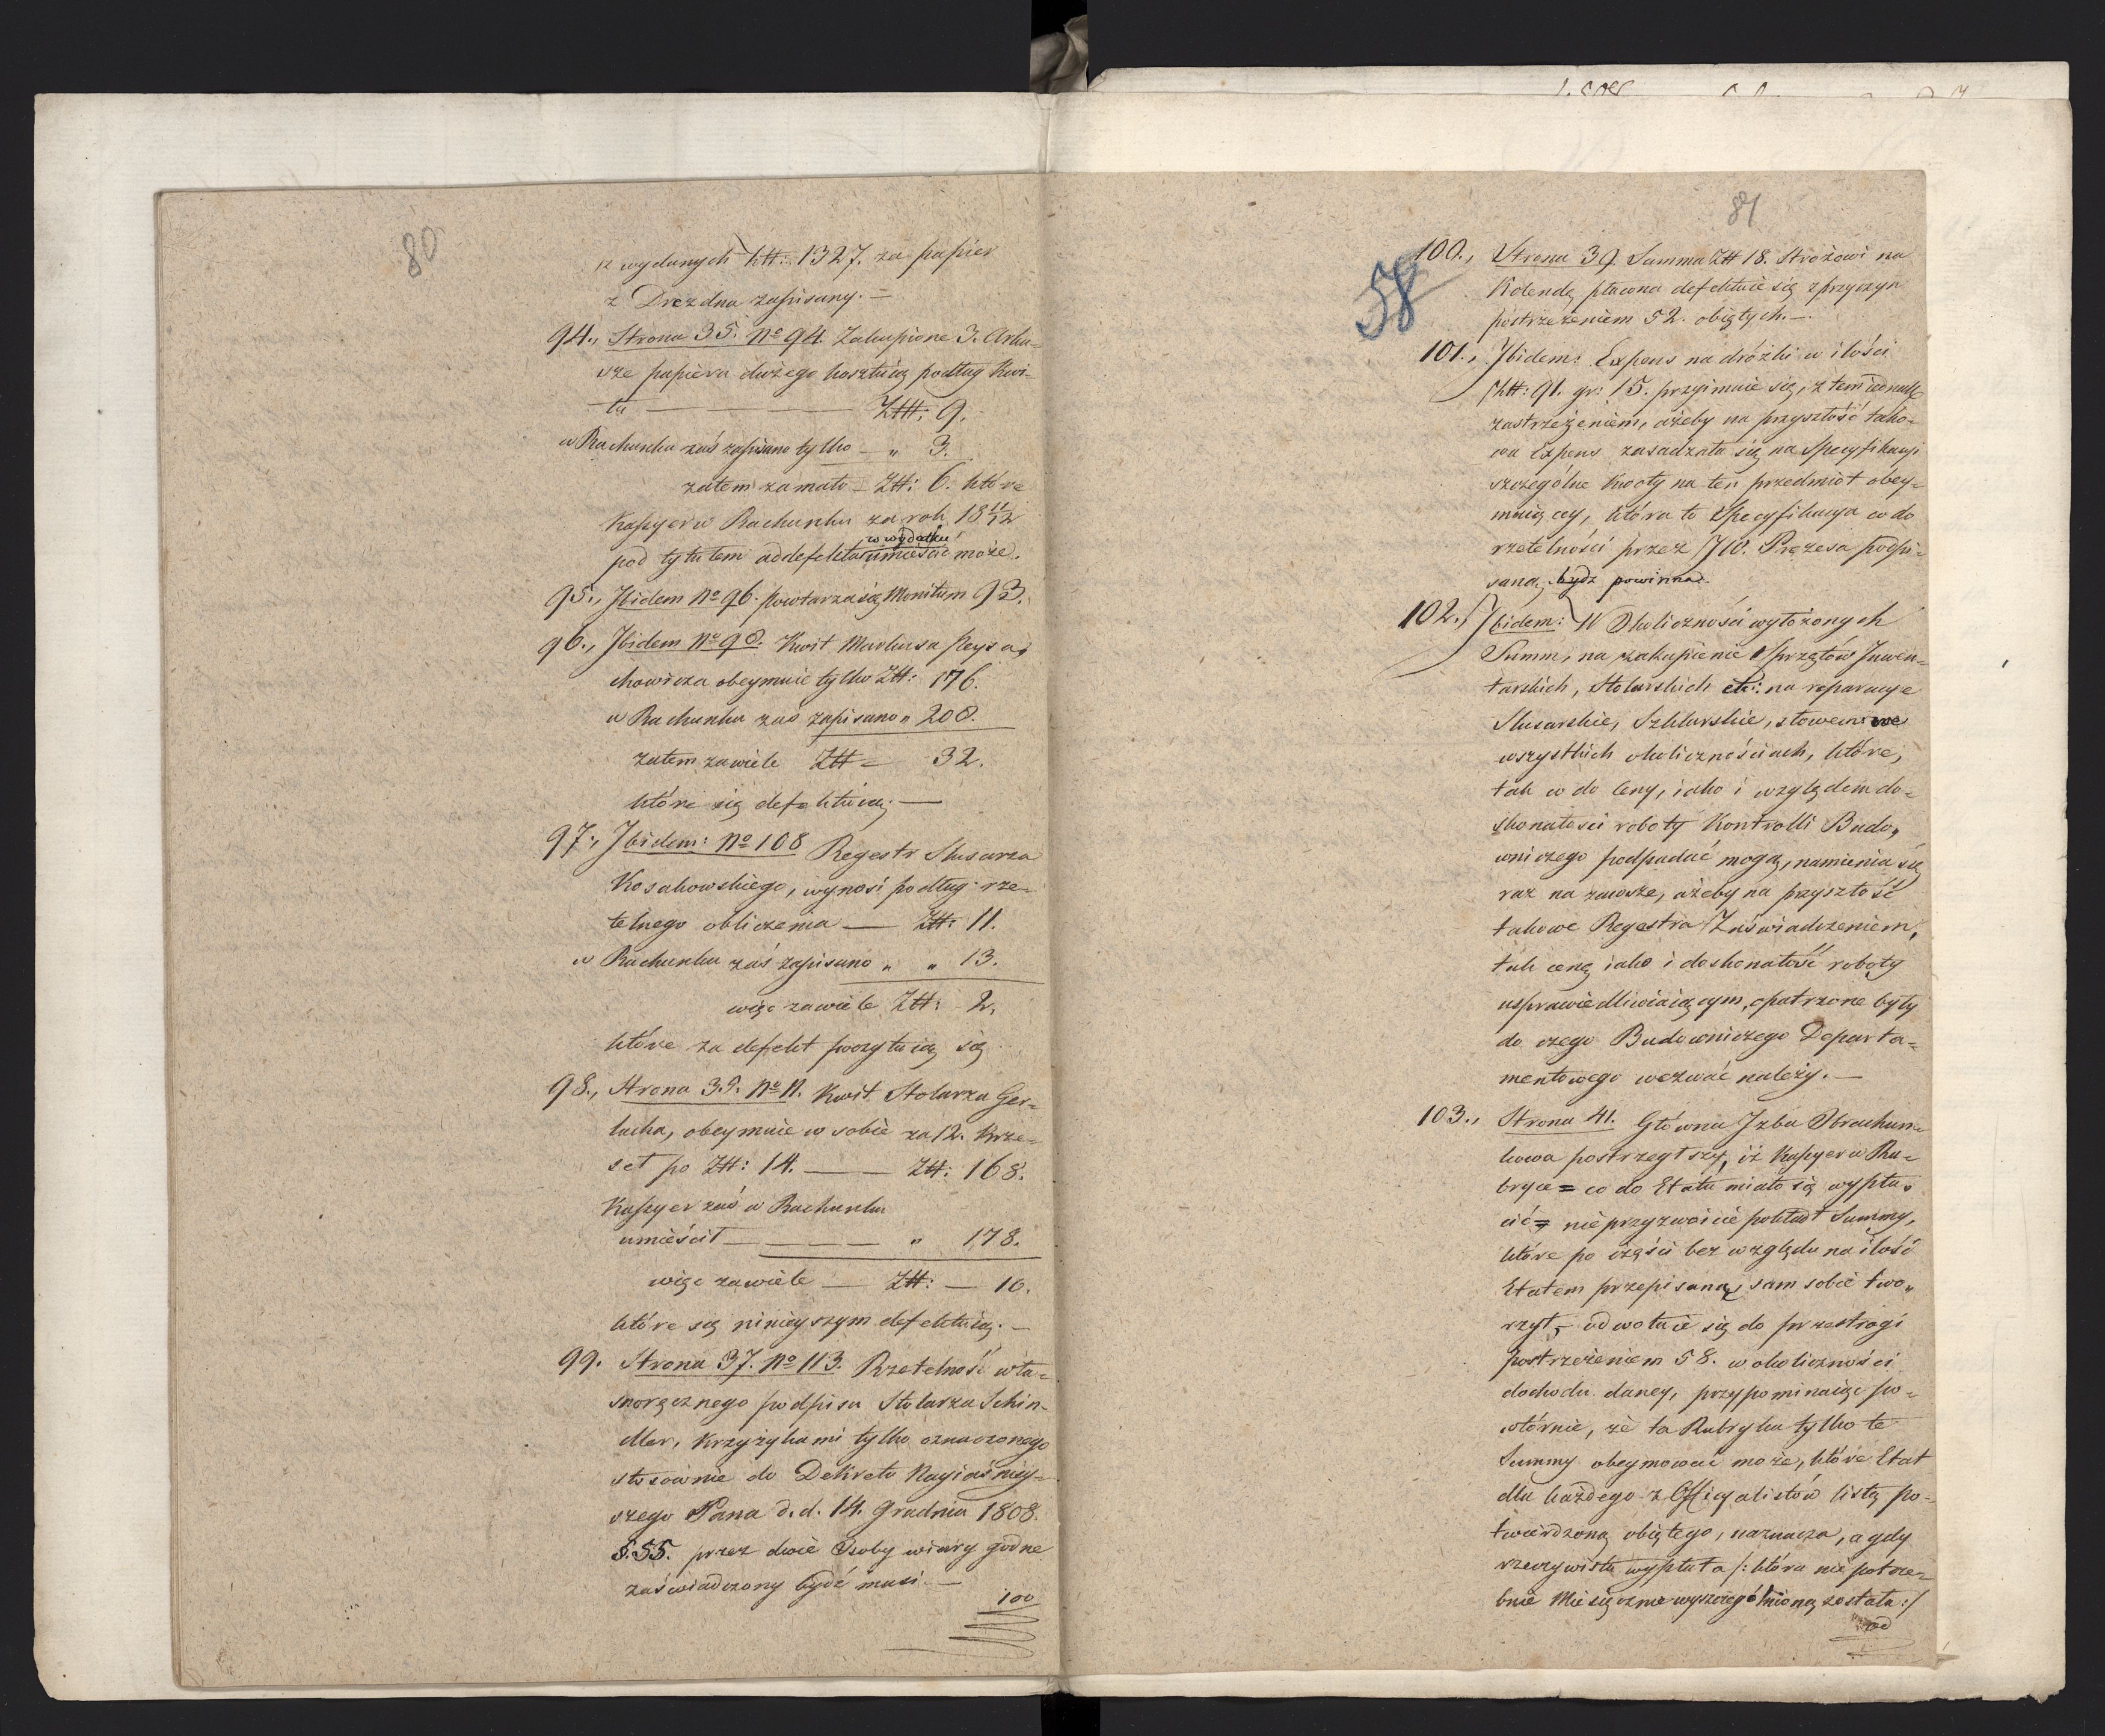 80
z wydanych Ztt: 1327. za papier
z Drezdna zapisany. =
94., Strona 35. No 94. Zakupione 3. Arku=
sze papieru dużego kosztuią podług Kwi-
tu — Ztt: 9.
w Rachunku zaś zapisano tylko — " 3.
zatem zamało — Ztt: 6. które
Kassyer w Rachunku za rok 18 11/12
w wydatku
pod tytułem ad defecta umieścić może.
95., Ibidem No 96. powtarza się Monitum 93.
96., Ibidem No 98. Kwit Markusa
chowicza obeymuie tylko Ztt: 176.
w Rachunku zaś zapisano " 208.
zatem zawiele Ztt = 32.
które się defektuią. —
97., Ibidem: No 108 Regestr Slusarza
Kosakowskiego, wynosi podług rze-
telnego obliczenia — Ztt: 11.
w Rachunku zaś zapisano " " 13.
więc zawiele Ztt: 2.
które za defekt poczytuią się
98., Strona 39. No 11. Kwit Stolarza Ger=
lacha, obeymuie w sobie za 12. Krze=
seł po Ztt: 14. — — Ztt: 168.
Kassyer zaś w Rachunku
umieścił — — — — " 178.
więc zawiele — Ztt: — 10.
które się ninieyszym defektuią. —
99. Strona 37. No 113. Rzetelność wła=
snoręcznego podpisu Stolarza Schin-
dler, krzyżykami tylko oznaczonego
stosownie do Dekretu Nayiaśniey=
szego Pana d. d. 14. Grudnia 1808.
§. 55. przez dwie Osoby wiary godne
zaświadczony bydź musi. —
100
81
58
100., Strona 39. Summa Ztt 18. Stróżowi na
Kolendę płacona defektuie się z przyczyn
postrzeżeniem 52. obiętych. —.
101., Ibidem: Expens na dróżki w ilości
Ztt: 91. gr: 15. przyimuie się, z tem iednak
zastrzeżeniem, ażeby na przyszłość tako=
wa Expens zasadzała się na Specyfikacyi
szczególne Kwoty na ten przedmiot obey=
muiącey, która to Specyfikacya co do
rzetelności przez JW. Prezesa podpi=
saną bydź powinna.
102., Ibidem: W Okoliczności wyłożonych
Summ, na zakupienie Sprzętów Inwen=
tarskich, Stolarskich etc: na reparacye
Slusarskie, Szklarskie, słowem we
wszystkich okolicznościach, które,
tak co do Ceny, iako i względem do=
skonałości roboty Kontrolli Budo"
wniczego podpadać mogą, namienia się
raz na zawsze, ażeby na przyszłość
takowe Regestra Zaświadczeniem,
tak cenę iako i doskonałość roboty
usprawiedliwiaiącym, opatrzone były
do czego Budowniczego Departa=
mentowego wezwać należy. —
103., Strona 41. Główna Izba Obrachun=
kowa postrzegłszy, iż Kassyer w Ru=
bryce = co do Etatu miało się wypła"
cić = nieprzyzwoicie pokładł Summy,
które po części bez względu na ilość
Etatem przepisaną, sam sobie two"
rzył, — odwołuie się do przestrogi
postrzeżeniem 58. w okoliczności
dochodu daney, przypominaiąc po=
wtórnie, że ta Rubryka tylko te
Summy obeymować może, które Etat
dla każdego z Officyalistów listą po=
twierdzoną obiętego, naznacza, a gdy
rzeczywista wypłata /: która nie potrze=
bnie Miesięcznie wyszczególnioną została :/
od